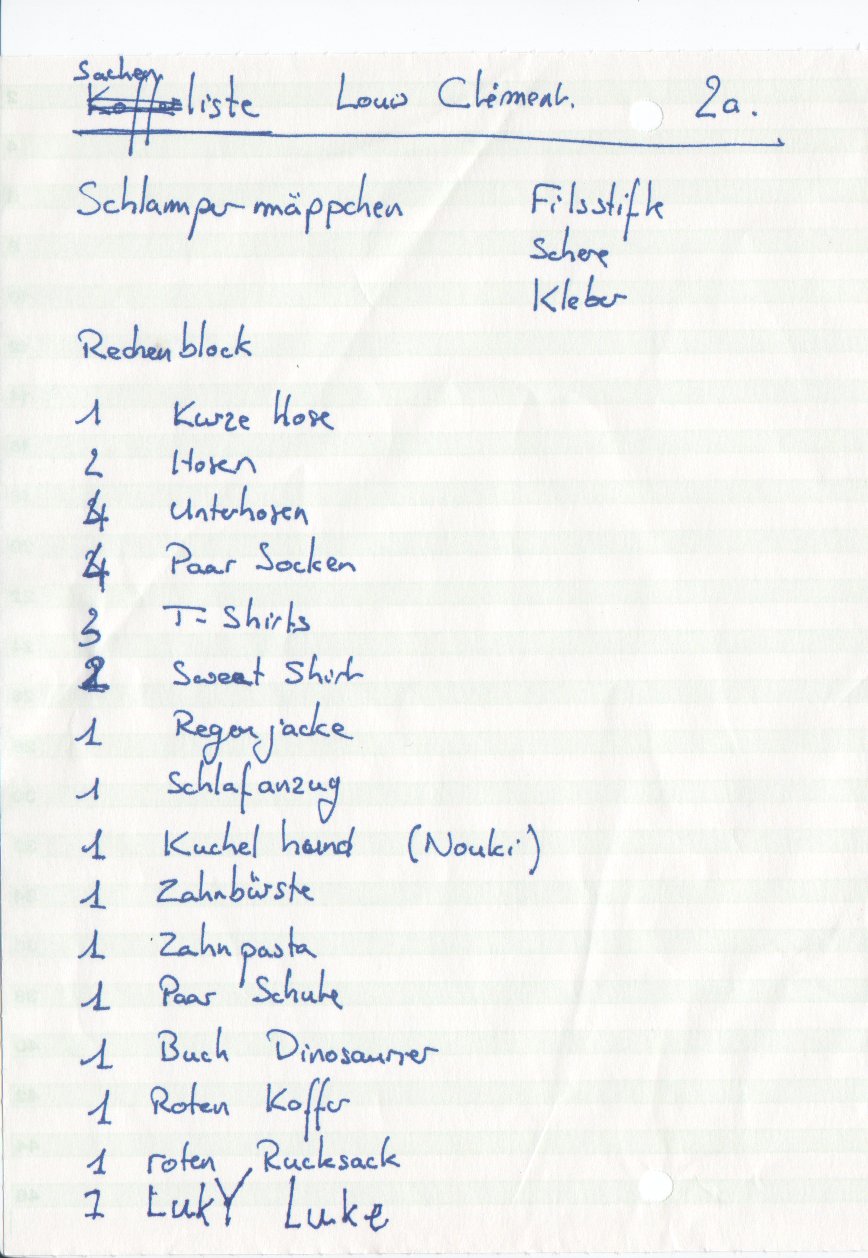 Sachen
Kofferliste Louis Clément. 2a.
Schlampermäppchen Filsstifte
Schere
Kleber
Rechenblock
1 Kurze Hose
2 Hosen
4 Unterhosen
4 Paar Socken
3 T-Shirts
2 Sweat Shirt
1 Regenjacke
1 Schlafanzug
1 Kuchel hund (Nouki)
1 Zahnbürste
1 Zahnpasta
1 Paar Schuhe
1 Buch Dinosaurier
1 Roten Koffer
1 roten Rucksack
1 LukY Luke